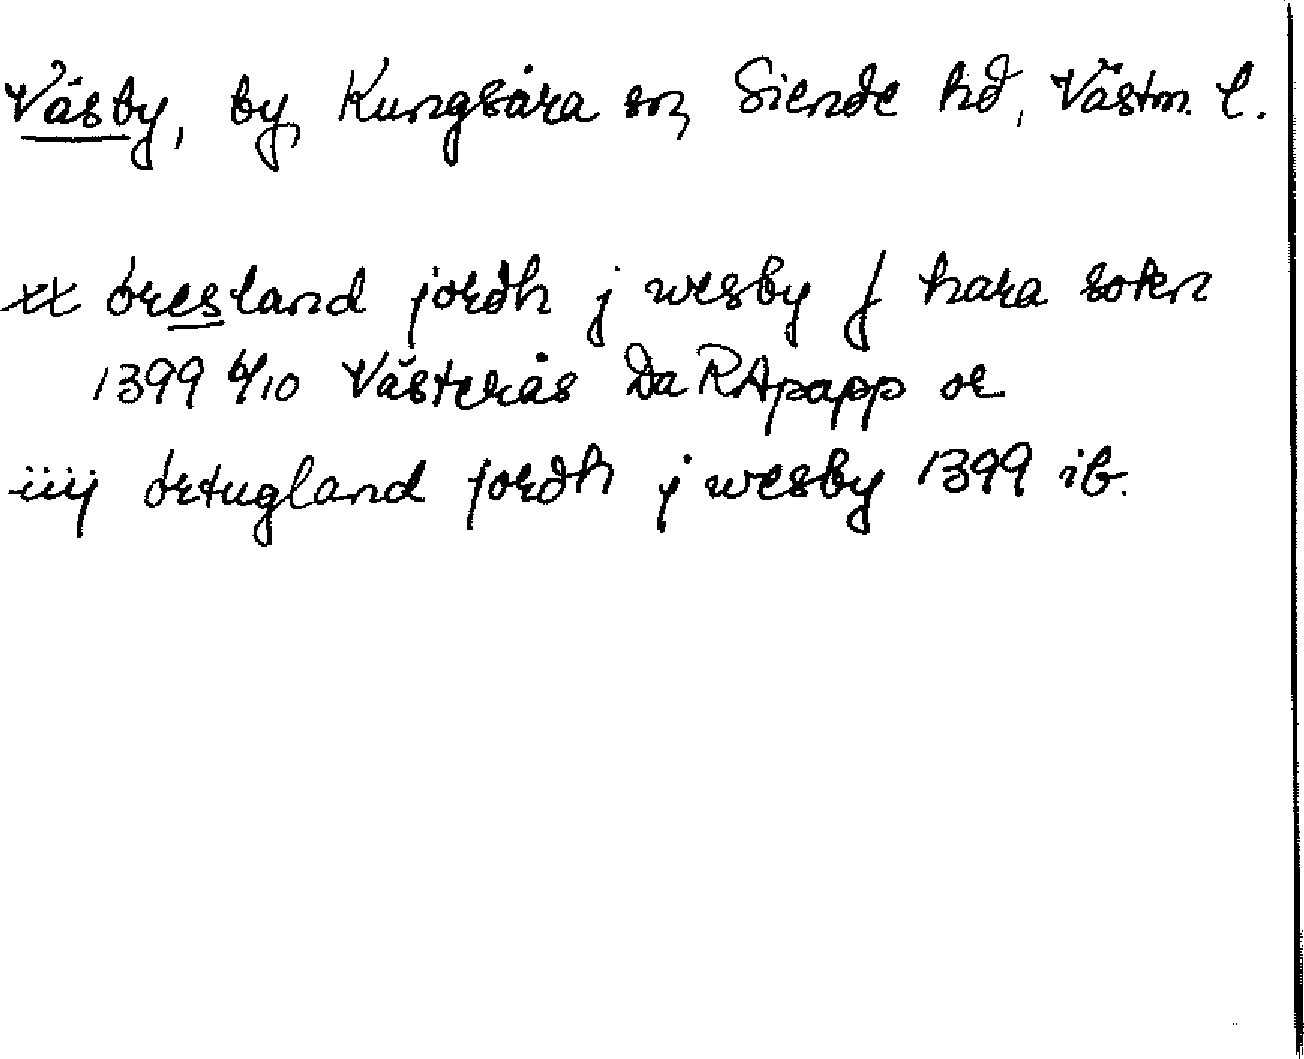 Väsby, by, Kungsåra sn, Siende hd, Västm. l.
xx öresland jordh j wesby J hara sokn
1399 6/10 Västerås Da RApapp or
iiij örtugland jordh j wesby 1399 ib.